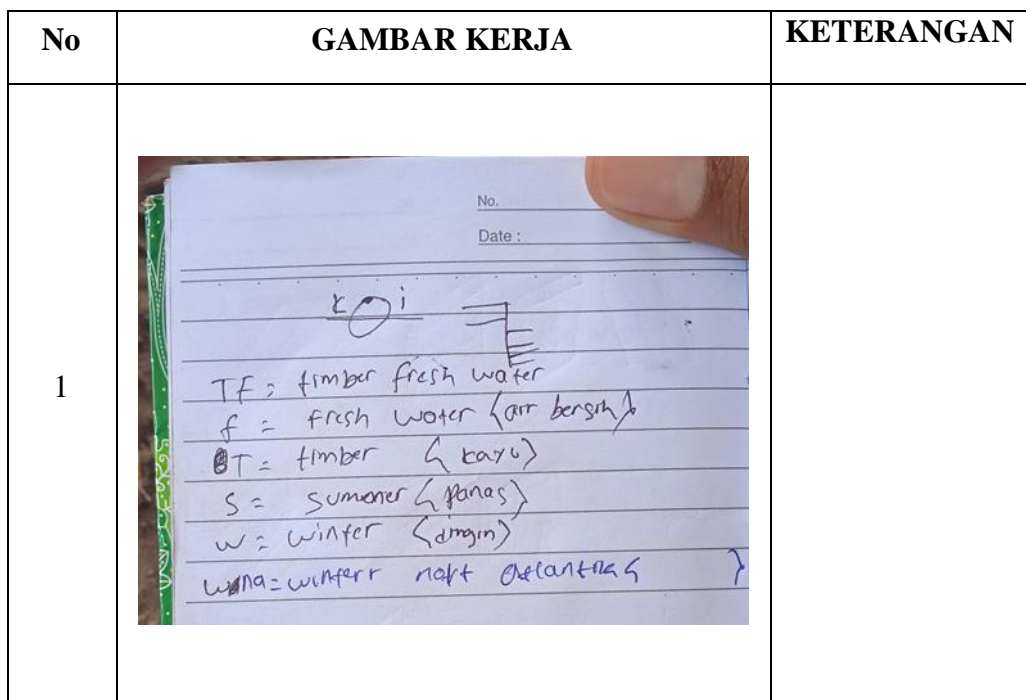 No GAMBAR KERJA KETERANGAN
1
No.
Date :
K i
TF = timber fresh water
f = fresh water (air bersih)
T = timber (kayu)
S = sumener (panas)
w = winter (dingin)
wna = winterr nort